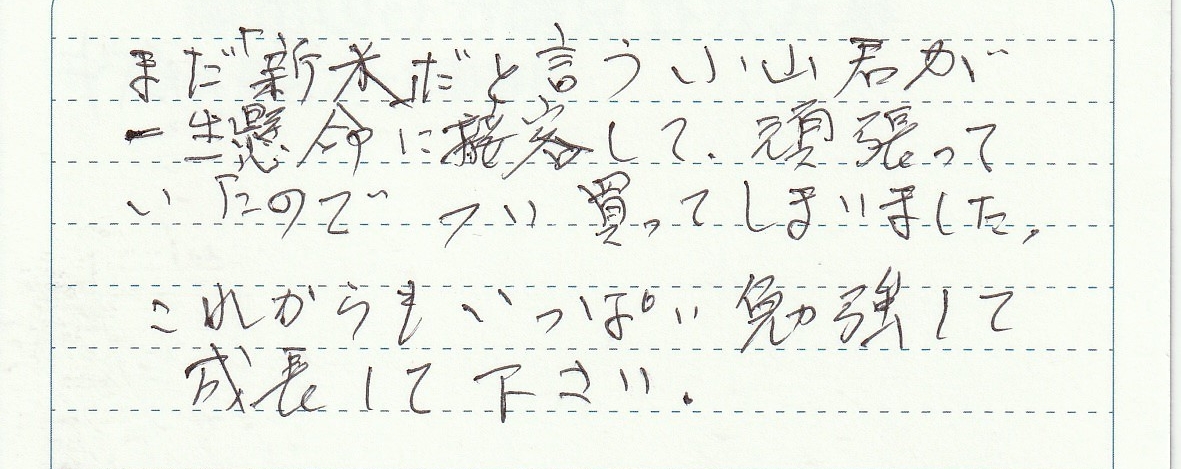 まだ「新米」だと言う小山君が
一生懸命に接客して、頑張って
いたのでつい買ってしまいました。
これからもいっぱい勉強して
成長して下さい。